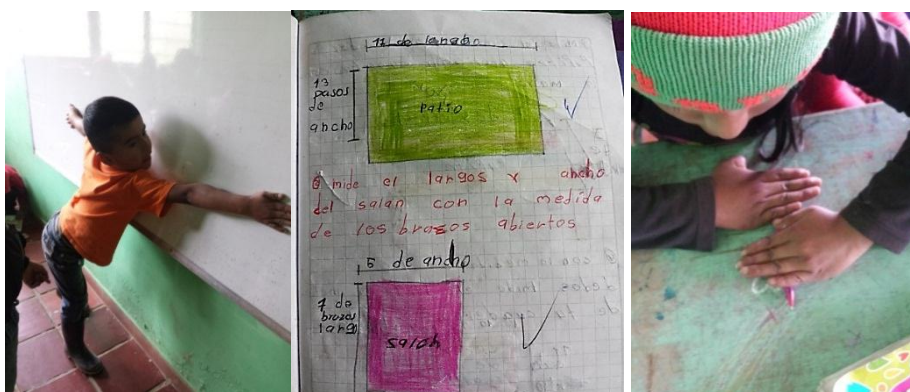 13
pasos
de
ancho
Patio
mide el largos y ancho
del salan con la medida
de los brazos abiertos
5 de ancho
7 de
brazos
largo
salon